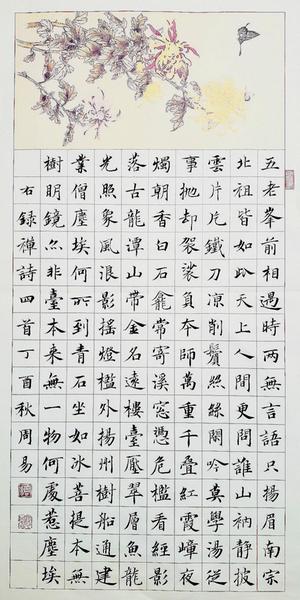 五老峯前相遇時兩無言語只揚眉南宗
北祖皆如此天上人間更問誰山衲靜披
雲片片鐵刀涼削鬢絲絲閑吟莫學湯從
事抛却袈裟負本師萬重千疊紅霞嶂夜
燭朝香白石龕常寄溪窓憑危檻看經影
落古龍潭山帶金名遠樓臺壓翠層魚龍
光照象風浪影搖燈檻外揚州樹船通建
業僧塵埃何所到青石坐如冰菩提本無
樹明鏡亦非臺本來無一物何處惹塵埃
右錄禪詩四首丁酉秋周易